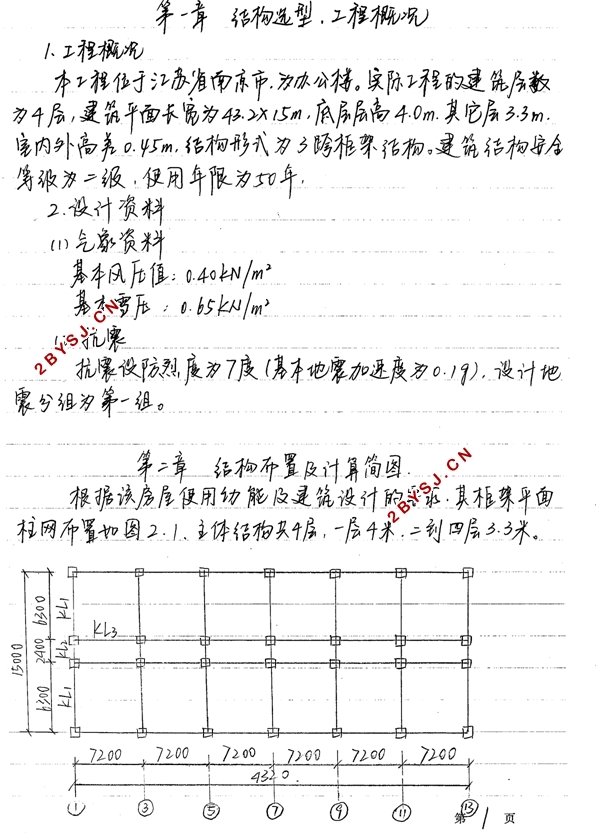 第一章 结构选型、工程概况
1、工程概况
本工程位于江苏省南京市,为办公楼。实际工程的建筑层数
为4层,建筑平面长宽为43.2×15m,底层层高4.0m.其它层3.3m.
室内外高差0.45m,结构形式为3跨框架结构。建筑结构安全
等级为二级,使用年限为50年.
2.设计资料
(1)气象资料
基本风压值:0.40KN/m²
基本雪压:0.65KN/m²
抗震
抗震设防烈度为7度(基本地震加速度为0.1g),设计地
震分组为第一组。
2BYSJ.CN
第二章 结构布置及计算简图.
根据该房屋使用功能及建筑设计的要求,其框架平面
柱网布置如图2.1、主体结构共4层,一层4米,二到四层3.3米。
2BYSJ.CN
15000
6300 2400 6300
KL1 KL2 KL1
KL3
7200 7200 7200 7200 7200 7200
4320
1 3 5 7 9 11 13
第 1 页